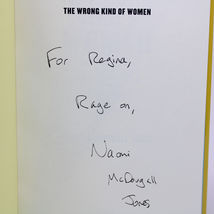 THE WRONG KIND OF WOMEN
For Regina,
Rage on,
Naomi
McDougall
Jones